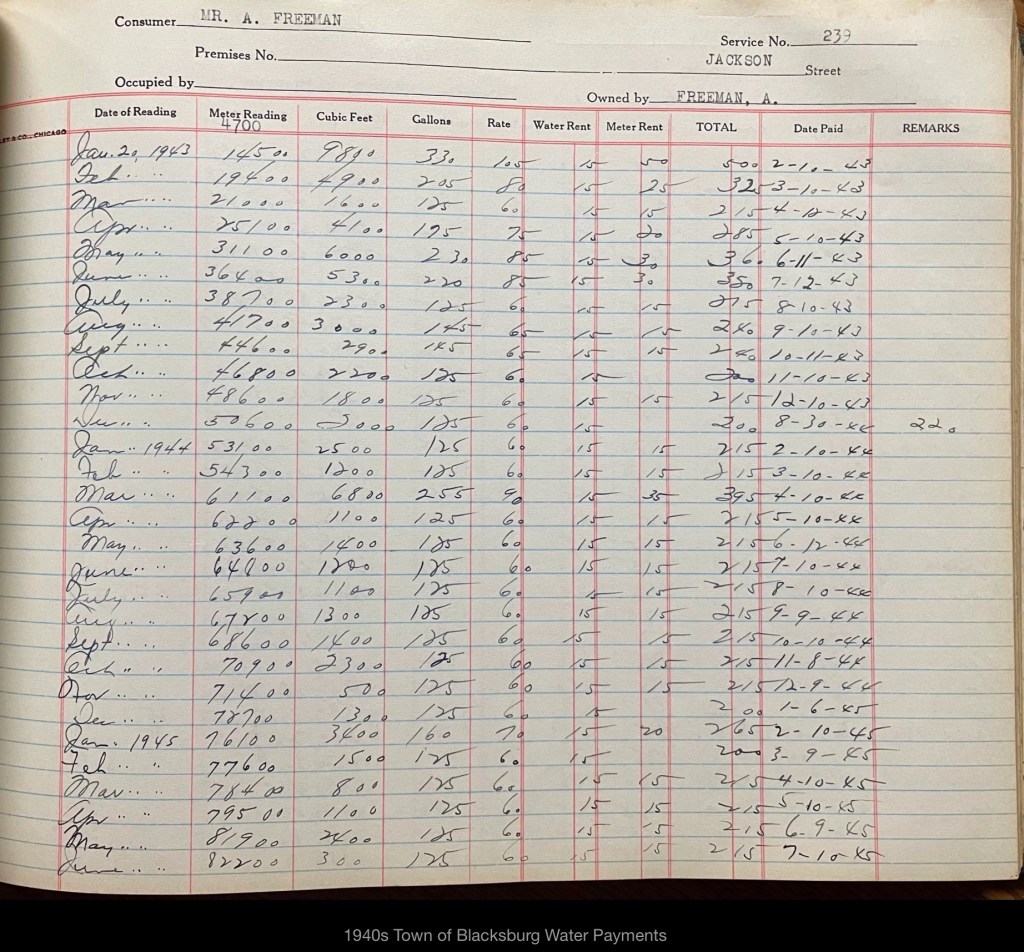 Consumer MR. A. FREEMAN
Service No. 239
Premises No. JACKSON Street
Occupied by
Owned by FREEMAN, A.
Date of Reading Meter Reading Cubic Feet Gallons Rate Water Rent Meter Rent TOTAL Date Paid REMARKS
& CO., CHICAGO 4700
Jan. 20, 1943 14500 9800 330 105 15 50 500 2-10-43
Feb. '' '' 19400 4900 205 80 15 25 325 3-10-43
Mar '' '' 21000 1600 125 60 15 15 215 4-12-43
Apr '' '' 25100 4100 175 75 15 20 285 5-10-43
May '' '' 31100 6000 230 85 15 30 360 6-11-43
June '' '' 36400 5300 220 85 15 30 350 7-12-43
July '' '' 38700 2300 125 60 15 15 215 8-10-43
Aug '' '' 41700 3000 145 65 15 15 240 9-10-43
Sept '' '' 44600 2900 145 65 15 15 240 10-11-43
Oct '' '' 46800 2200 125 60 15 200 11-10-43
Nov '' '' 48600 1800 125 60 15 15 215 12-10-43
Dec '' '' 50600 2000 125 60 15 200 8-30-44 220
Jan '' 1944 53100 2500 125 60 15 15 215 2-10-44
Feb '' '' 54300 1200 125 60 15 15 215 3-10-44
Mar '' '' 61100 6800 255 90 15 35 395 4-10-44
Apr '' '' 62200 1100 125 60 15 15 215 5-10-44
May '' '' 63600 1400 125 60 15 15 215 6-12-44
June '' '' 64800 1200 125 60 15 15 215 7-10-44
July '' '' 65900 1100 125 60 15 15 215 8-10-44
Aug '' '' 67200 1300 125 60 15 15 215 9-9-44
Sept '' '' 68600 1400 125 60 15 15 215 10-10-44
Oct '' '' 70900 2300 125 60 15 15 215 11-8-44
Nov '' '' 71400 500 125 60 15 15 215 12-9-44
Dec '' '' 72700 1300 125 60 15 200 1-6-45
Jan. 1945 76100 3400 160 70 15 20 265 2-10-45
Feb '' '' 77600 1500 125 60 15 200 3-9-45
Mar '' '' 78400 800 125 60 15 15 215 4-10-45
Apr '' '' 79500 1100 125 60 15 15 215 5-10-45
May '' '' 81900 2400 125 60 15 15 215 6-9-45
June '' '' 82200 300 125 60 15 15 215 7-10-45
1940s Town of Blacksburg Water Payments